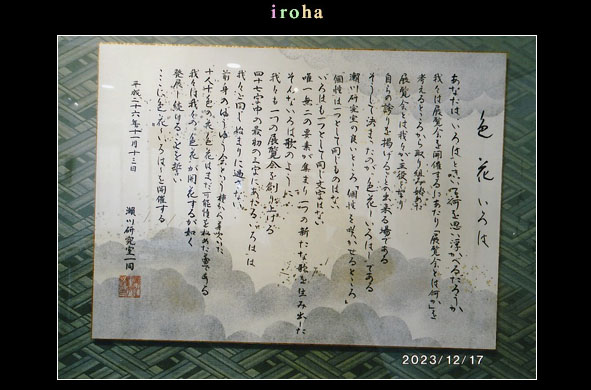 iroha
色花 いろは
あなたは「いろは」と聞いて何を思い浮かべるだろうか
我々は展覧会を開催するにあたり「展覧会とは何か」を
考えるところから取り組み始めた
展覧会とは我々が
自らの誇りを掲げることの出来る場である
そうして決まったのが「色花〜いろは〜」である
瀬川研究室の良いところ「個性を咲かせるところ」
個性は一つとして同じものはない
いろはも一つとして同じ文字はない
唯一無二の要素が集まり一つの新たな歌を生み出した
そんないろは歌のように
我々も一つの展覧会を創り上げる
四十七字中の最初の三字にあたる「いろは」は
我々と同じ始まりに過ぎない
十人十色の「色花」はまだ可能性を秘めた蕾である
我々は我々の「色花」が開花するが如く
発展し続けることを誓い
ここに「色花〜いろは〜」を開催する
平成二十六年十一月十三日
瀬川研究室一同
2023/12/17